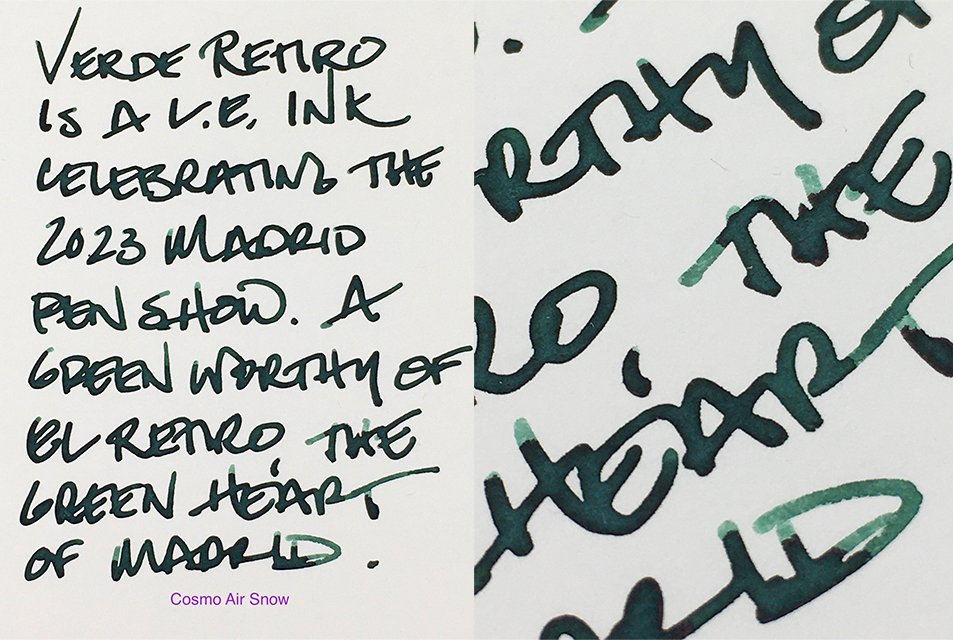 VERDE RETIRO
IS A L.E. INK
CELEBRATING THE
2023 MADRID
PEN SHOW. A
GREEN WORTHY OF
EL RETIRO, THE
GREEN HEART
OF MADRID.
Cosmo Air Snow
RTHY O
RO, THE
HEART
RID